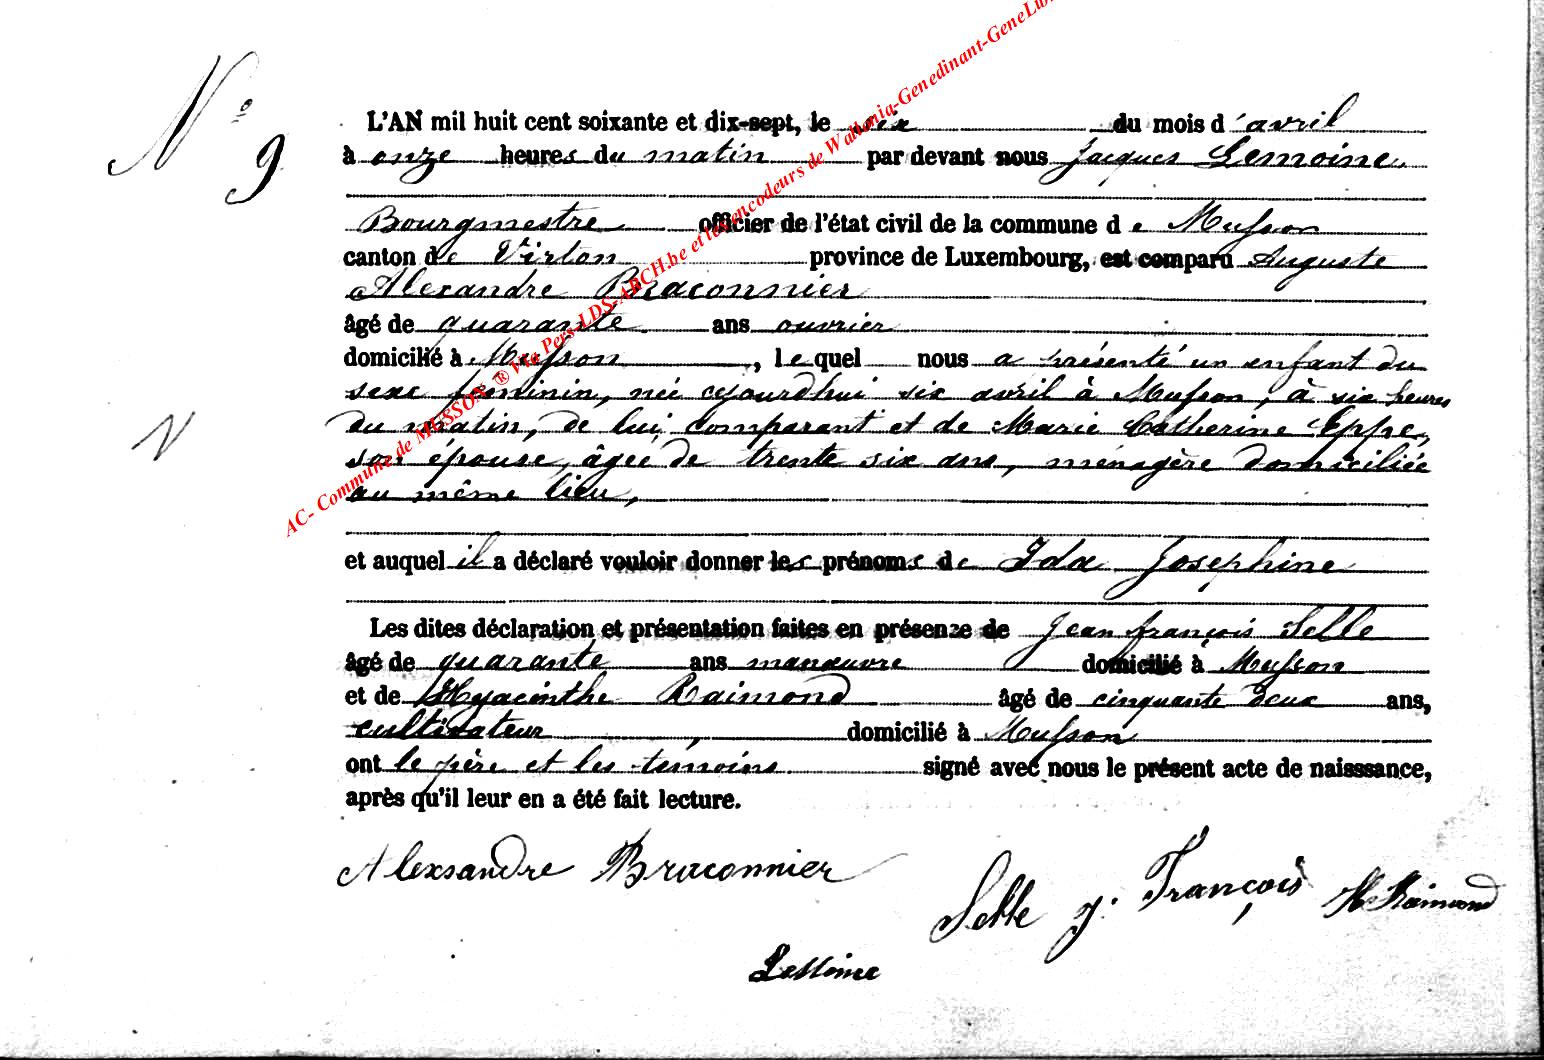 N° 9
L'AN mil huit cent soixante et dix-sept, le six du mois d'avril
à onze heures du matin par devant nous Jacques Lemoine,
Bourgmestre officier de l'état civil de la commune de Musson
canton de Virton province de Luxembourg, est comparu Auguste
Alexandre Braconnier
âgé de quarante ans ouvrier
domicilié à Musson, lequel nous a présenté un enfant du
sexe féminin, née cejourdhui six avril à Musson, à six heures
du matin, de lui comparant et de Marie Catherine Eppe,
son épouse, âgée de trente six ans, ménagère domiciliée
au même lieu,
et auquel il a déclaré vouloir donner les prénoms de Ida Joséphine
Les dites déclaration et présentation faites en présenze de Jean françois Selle
âgé de quarante ans manœuvre domicilié à Musson
et de Hyacinthe Raimond âgé de cinquante deux ans,
cultivateur, domicilié à Musson
ont le père et les témoins signé avec nous le présent acte de naisssance,
après qu'il leur en a été fait lecture.
Alexsandre Braconnier
Selle J. François H Raimond
Lemoine
N
AC- Commune de MUSSON ® Via Pers-LDS-ARCH.be et les encodeurs de Wallonia-Genedinant-GeneLux